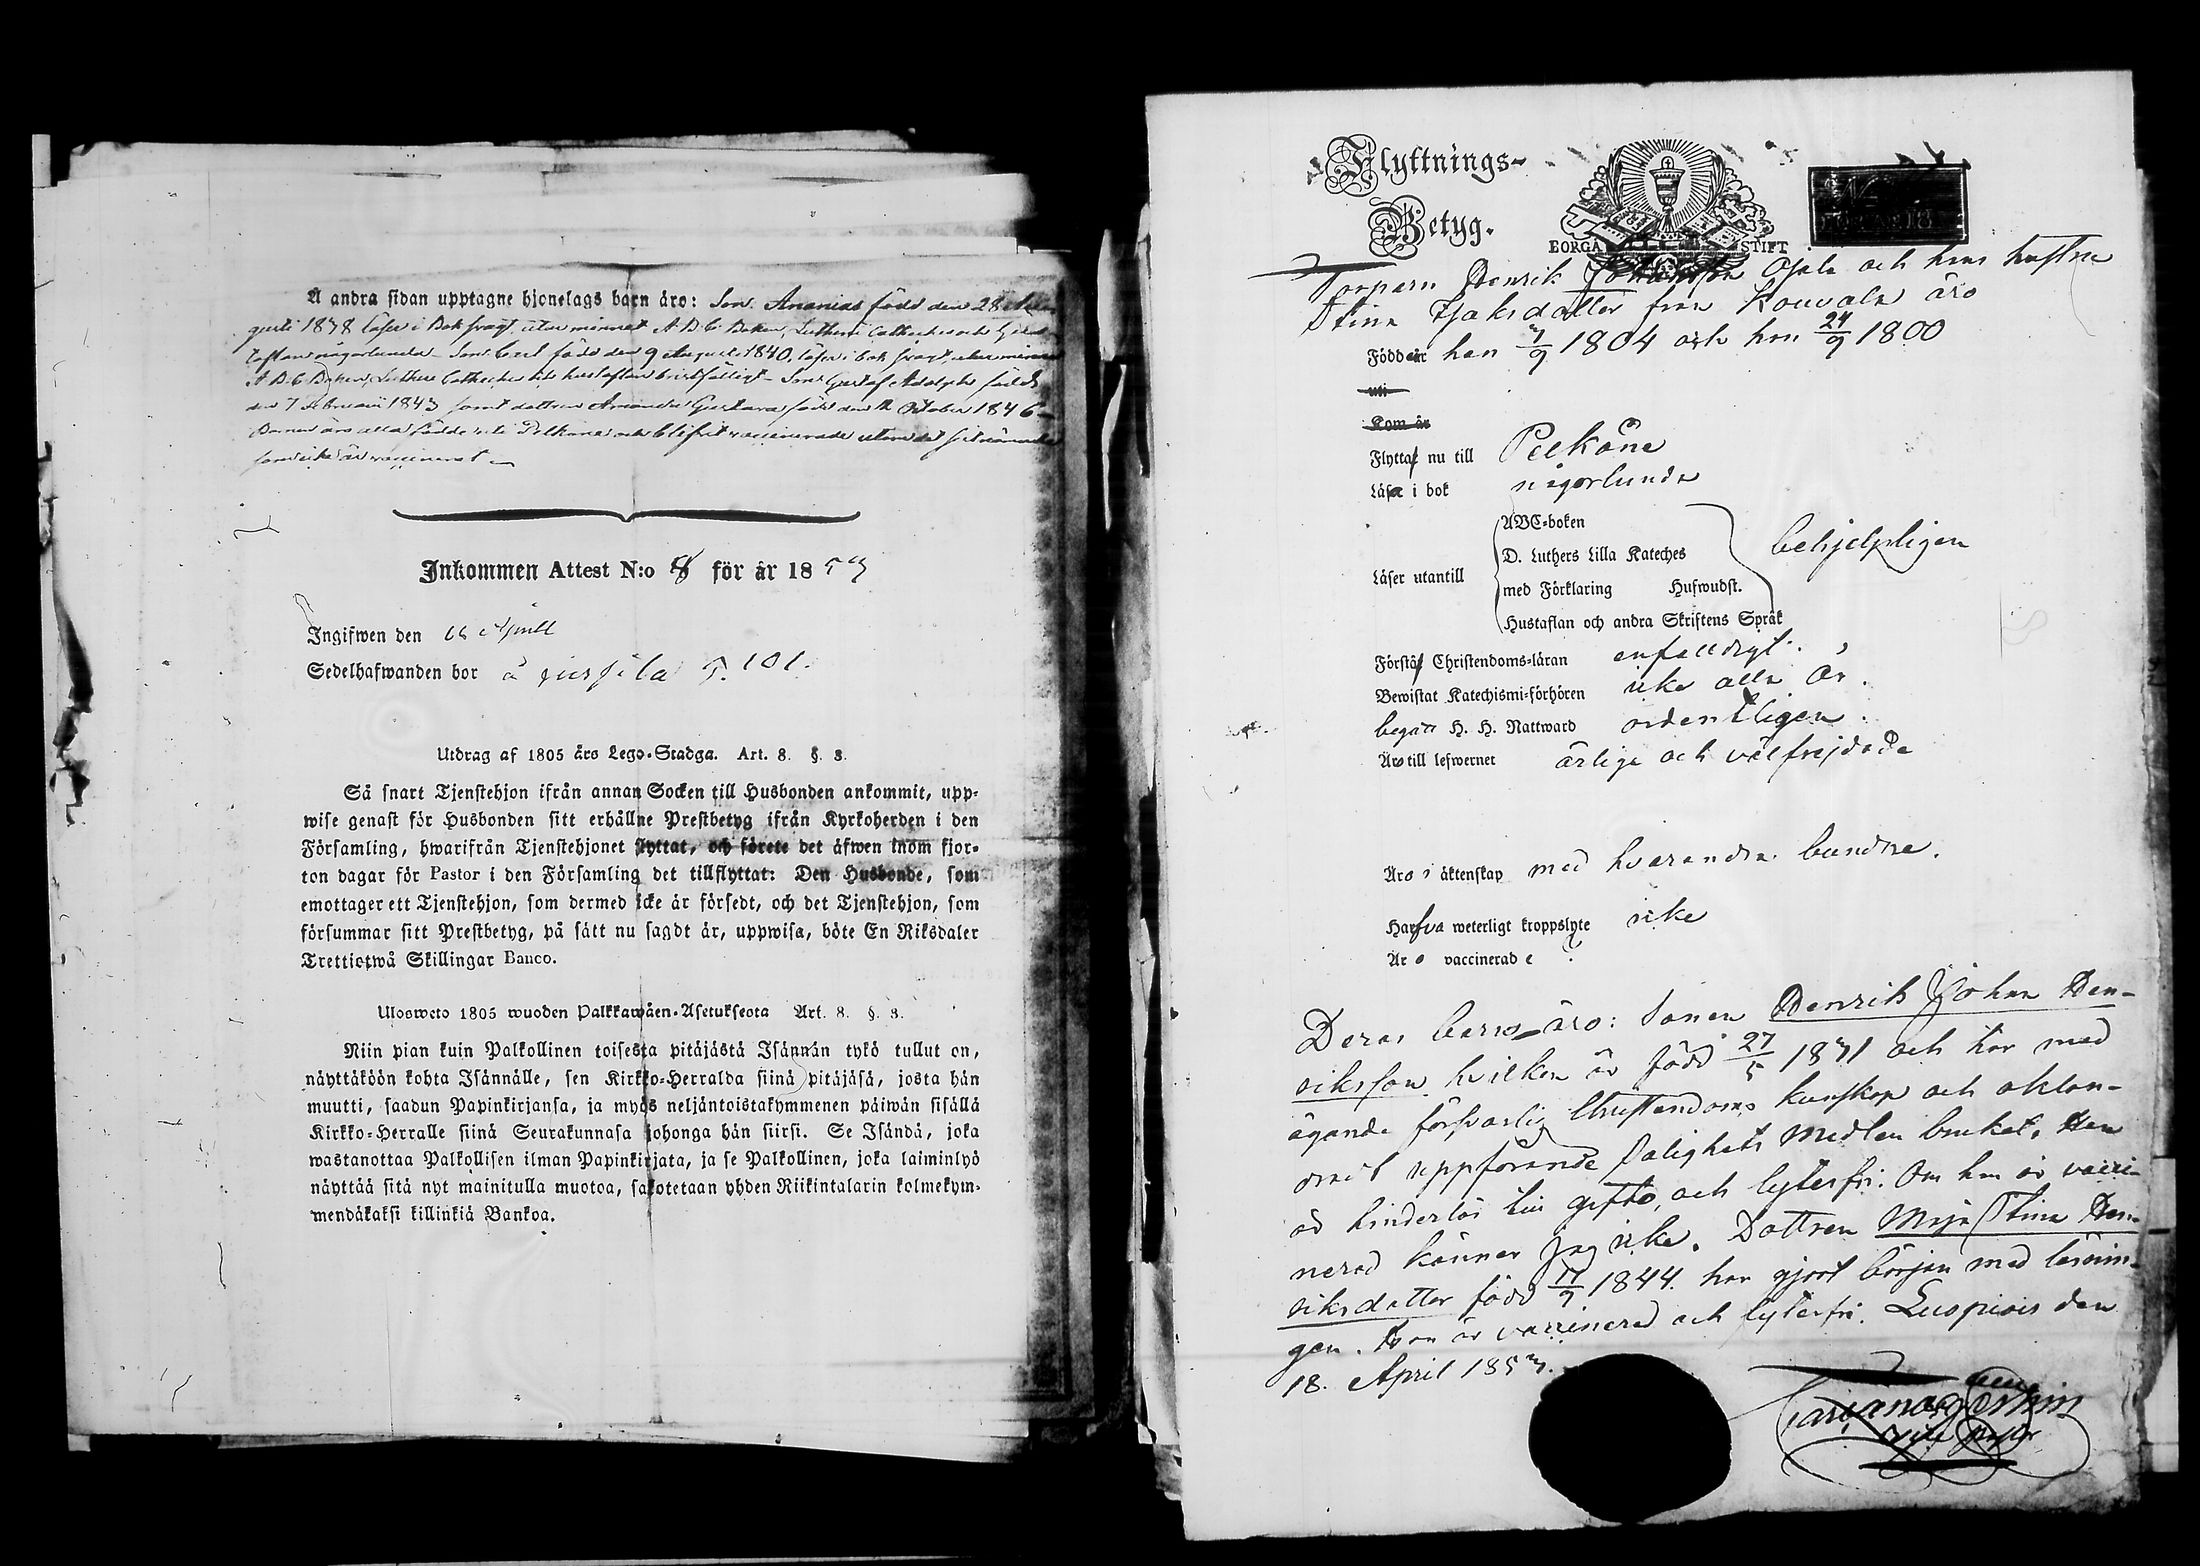 Å andra sidan upptagne hjonelags barn äro: Son Ananias född den 28 Au-
gusti 1838 läser i Bok svagt, utur minnet A.B.C. Boken, Lutheri Cathechis och
Hustaflan någorlunda. Son Carl född den 9 Augusti 1840, läser i bok svagt, utur minnet
A.B.C. Boken, Lutheri Cathechis och hustaflan bristfälligt. Son Gustaf Adolph född
den 7 Februarii 1843 samt dottren Amanda Gustava född den 12 October 1846
Barnen äro alla födde uti Pelkäne och blifvit vaccinerade utom det sistnämnda
som icke är vaccinerat
Inkommen Attest N:o 8 för år 1853
Ingifwen den April
Sedelhafwanden bor å 101.
Utdrag af 1805 års Lego-Stadga. Art. 8. §. 3.
Så snart Tjenstehjon ifrån annan Socken till Husbonden ankommit, upp-
wise genast för Husbonden sitt erhållne Prestbetyg ifrån Kyrkoherden i den
Församling, hwarifrån Tjenstehjonet flyttat, och förete det äfwen inom fjor-
ton dagar för Pastor i den Församling det tillflyttat: Den Husbonde, som
emottager ett Tjenstehjon, som dermed icke är försedt, och det Tjenstehjon, som
försummar sitt Prestbetyg, på sätt nu sagdt är, uppwisa, böte En Riksdaler
Trettiotwå Skillingar Banco.
Ulosweto 1805 wuoden Palkkawäen-Asetuksesta Art. 8. §. 3.
Niin pian kuin Palkollinen toisesta pitäjästä Isännän tykö tullut on,
näyttäköön kohta Isännälle, sen Kirkko-Herralda siinä pitäjäsä, josta hän
muutti, saadun Papinkirjansa, ja myös neljäntoistakymmenen päiwän sisällä
Kirkko-Herralle siinä Seurakunnasa johonga hän siirsi. Se Isändä, joka
wastanottaa Palkollisen ilman Papinkirjata, ja se Palkollinen, joka laiminlyö
näyttää sitä nyt mainitulla muotoa, sakotetaan yhden Riikintalarin kolmekym-
mendäkaksi killinkiä Bankoa.
Flyttnings-
Betyg.
BORGÅ STIFT
Torparn Henrik Johansson och hans hustru
Stina dotter från Kouvala äro
Född år han 7/9 1804 och hon 24/9 1800
uti
Kom år
Flytta nu till Pelkäne
Läsa i bok någorlunda
ABC-boken
D. Luthers Lilla Kateches
Läser utantill
behjelpligen
med Förklaring Hufwudst.
Hustaflan och andra Skriftens Språk
Förstå Christendoms-läran enfaldigt.
Bewistat Katechismi-förhören icke alla år.
begått H. H. Nattward ordentligen.
Äro till lefwernet ärliga och välfrejdade
Äro i äktenskap med hvarandra bundne.
Hafva weterligt kroppslyte icke
Äro vaccinerade ?
Deras barn äro: Sonen Henrik Johan Hen-
riksson hvilken är född 27/5 1831 och har med
ägande försvarlig Christendoms kunskap och oklan-
dradt uppförande Salighets Medlen brukat. Han
är hinderlös till gifte, och lytesfri. Om han är vacci-
nerad känner jag icke. Dottren Maja Stina Hen-
riksdotter född 17/9 1844. har gjort början med läsnin-
gen. Hon är vaccinerad och lytesfri. Luopiois den
18. April 1853.